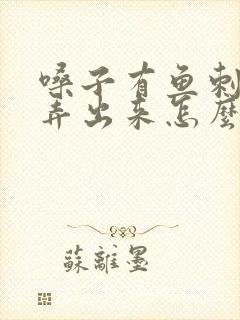 嗓子有鱼刺
弄出来怎麼
蘇離墨